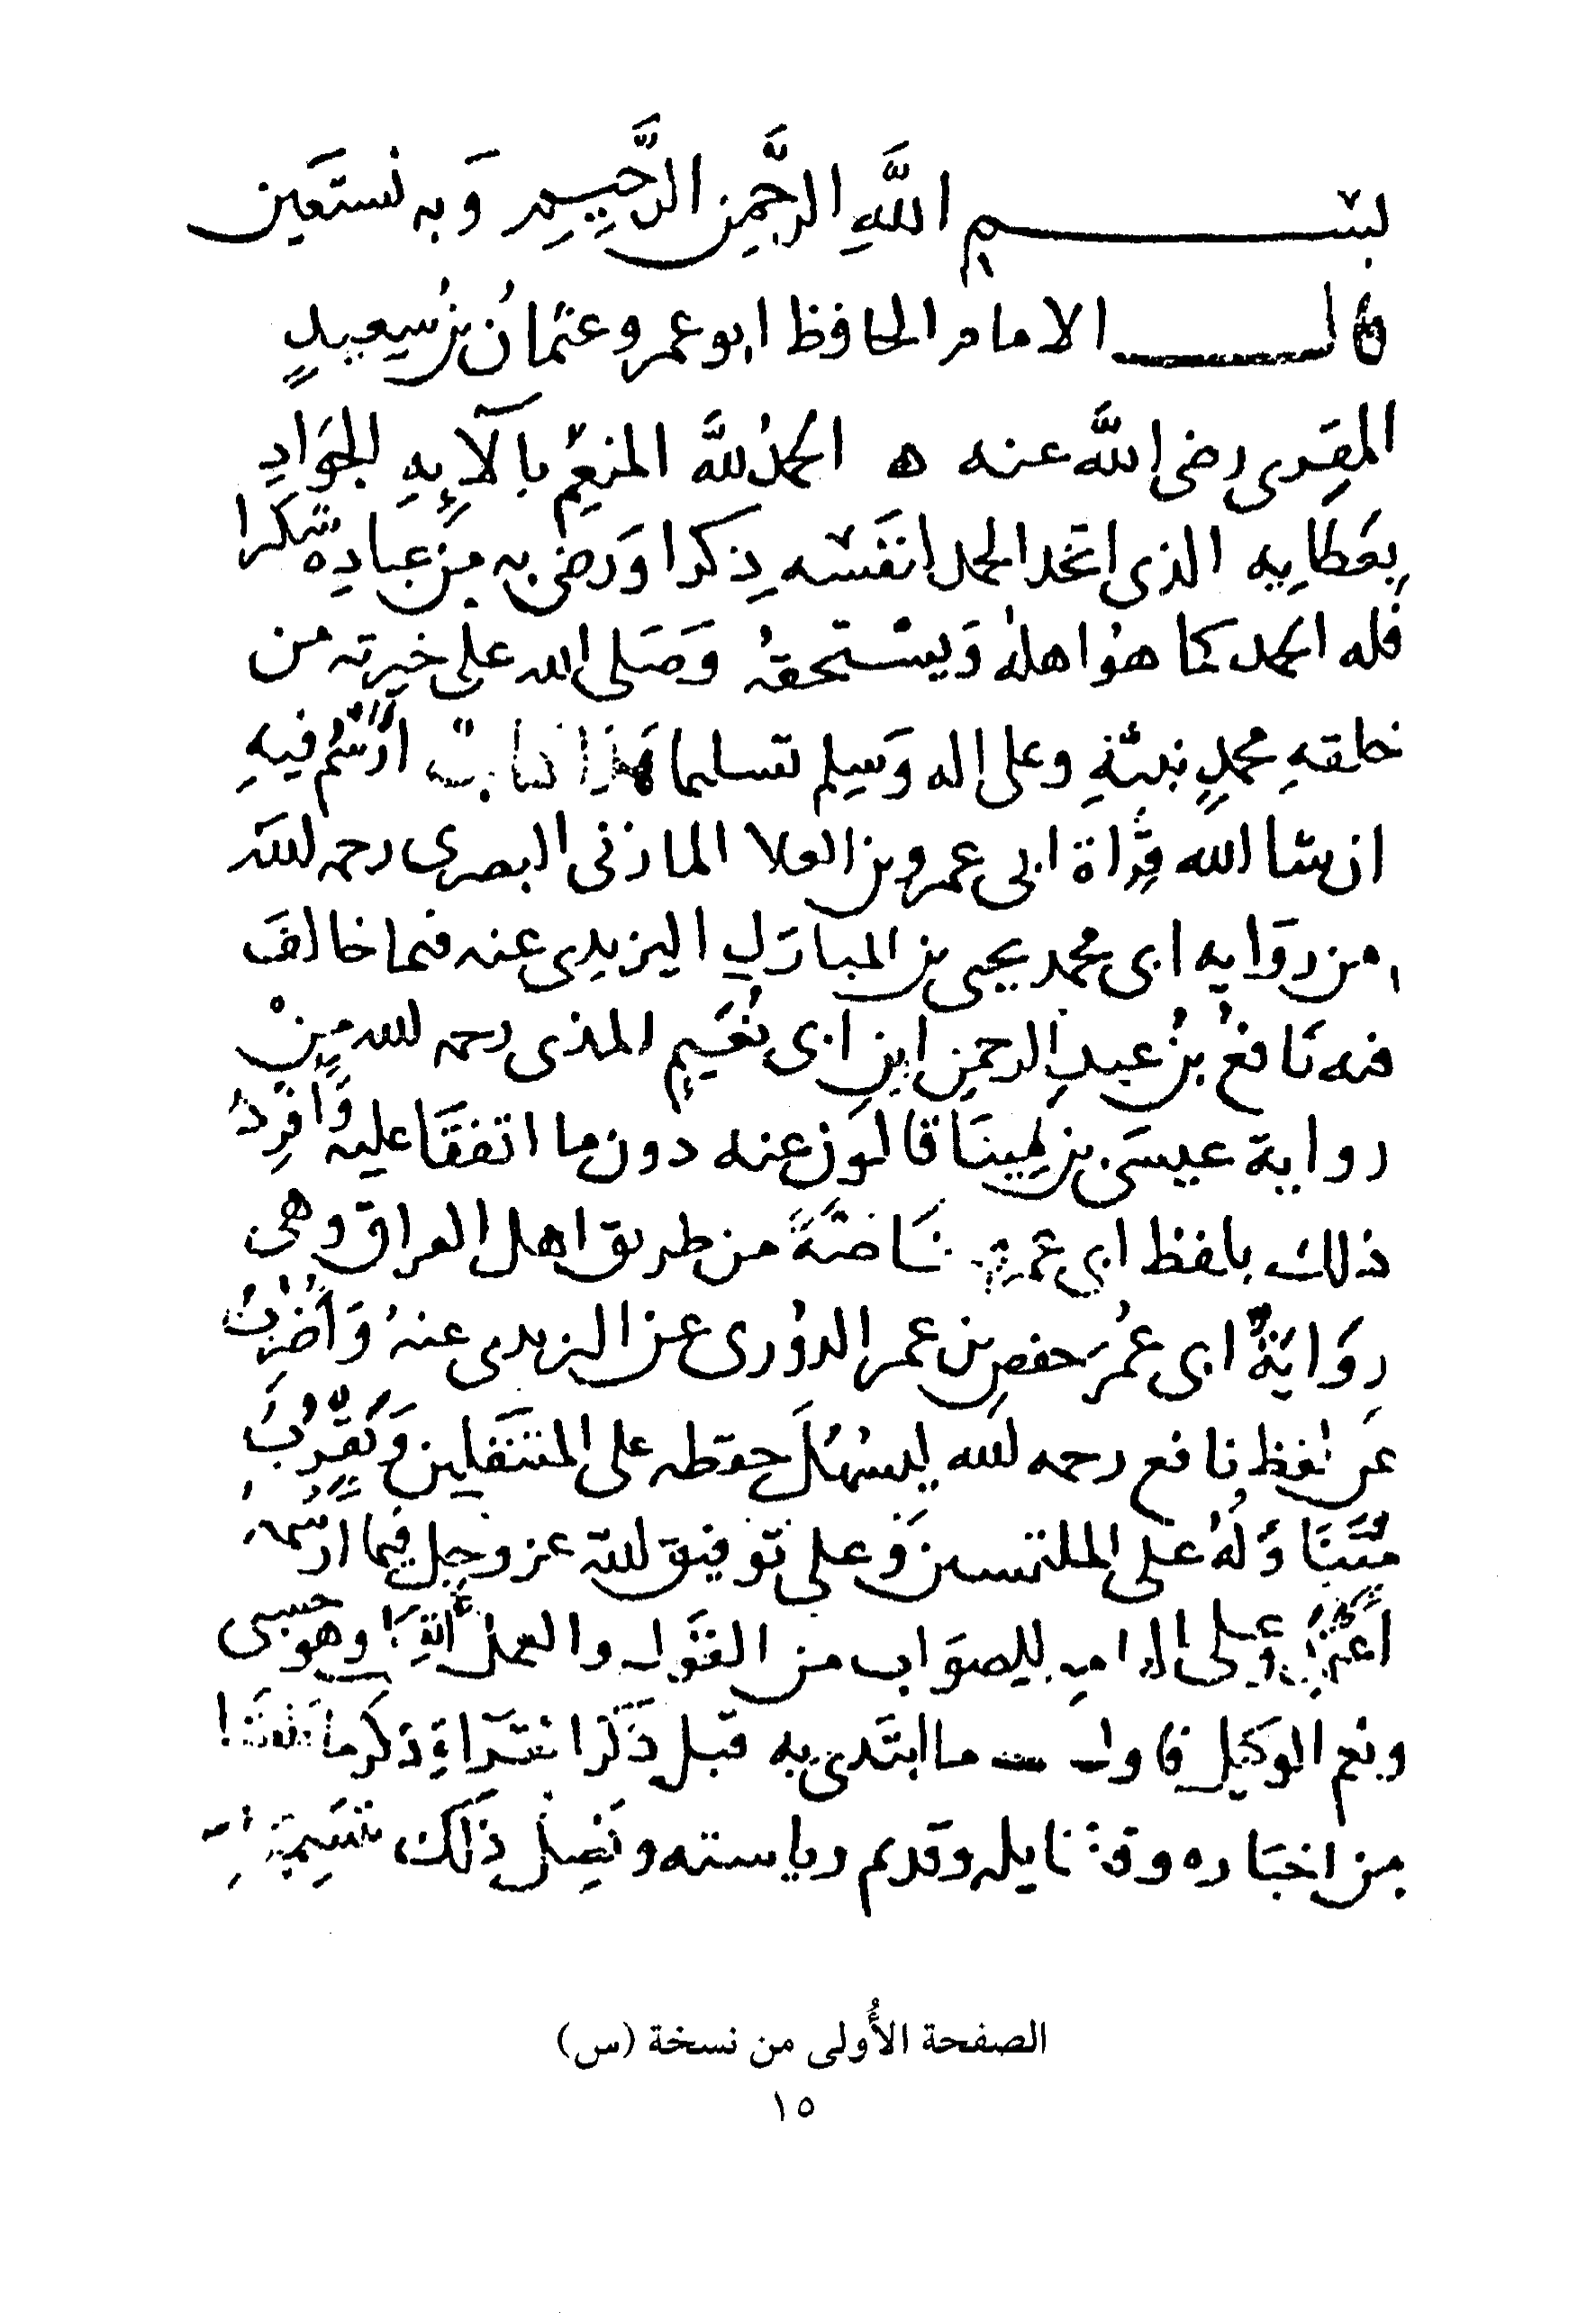 بســـــــم اللَّهِ الرَّحمِن الرَّحِيِمِ وَبه نستَعين
قالـــــــ الامام الحافظ ابو عمرو عثمانُ بنُ سعيدٍ
المقِرى رضى اللَّه عنه ه الحمدُ للَّه المنعِم بآلآيِهِ الجَوادِ
بعَطايِه الذى اتخد الحمد لنفَسْه ذِكرا وَرضى به مِن عبادِه شكرا
فله الحمد كما هوُ اهلهُ وَيسْتحقهُ وَصَلى الله على خيرته من
خلقهِ محمدٍ نبيّهِ وعلى اله وَسلم تسليما هَذا كتابٌ ارْسُم فيهِ
ان شا الله قِراة ابى عمرو بن العلا المازنى البصرى رحمه الله
من روَايه ابى محمد يحيى بن المبارَك اليزيدى عنه فيما خالفَ
فيه نَافعُ بنُ عبدِ الرحمن ابنِ ابى نُعَيمٍ المدنى رحمه الله مِنْ
رواية عيسَى بن مِينَا قالوُن عنه دون ما اتفقَا عليه وَافرِدُ
ذلك بلفظ ابى عمرو خَاصَّةً من طريق اهل العراق وهى
رِوَايَةُ ابى عمُرَ حفصِ بن عمر الدوُرى عن اليزيدى عنهُ وَاضربُ
عَن لفظ نافع رحمه الله ليسْهُلَ حفظه على المتنَفلين وَيَقرُبَ
مُتَنَاوَلُهُ على الملتمسين وَعلى توفيق الله عز وجل فيما ارسُمهُ
اعتمِدُ وعلى الهامِه للصوَاب من القوَل والعمل وهو حسبى
ونعم الوكيل فاولـ ما ابتَدى به قبل ذَكر القرَاءَةِ ذكرَ ما
مِن اخبَاره وفضايله وقديم رياسته ونَصِل ذَلك
الصفحة الأُولى من نسخة (س)
١٥